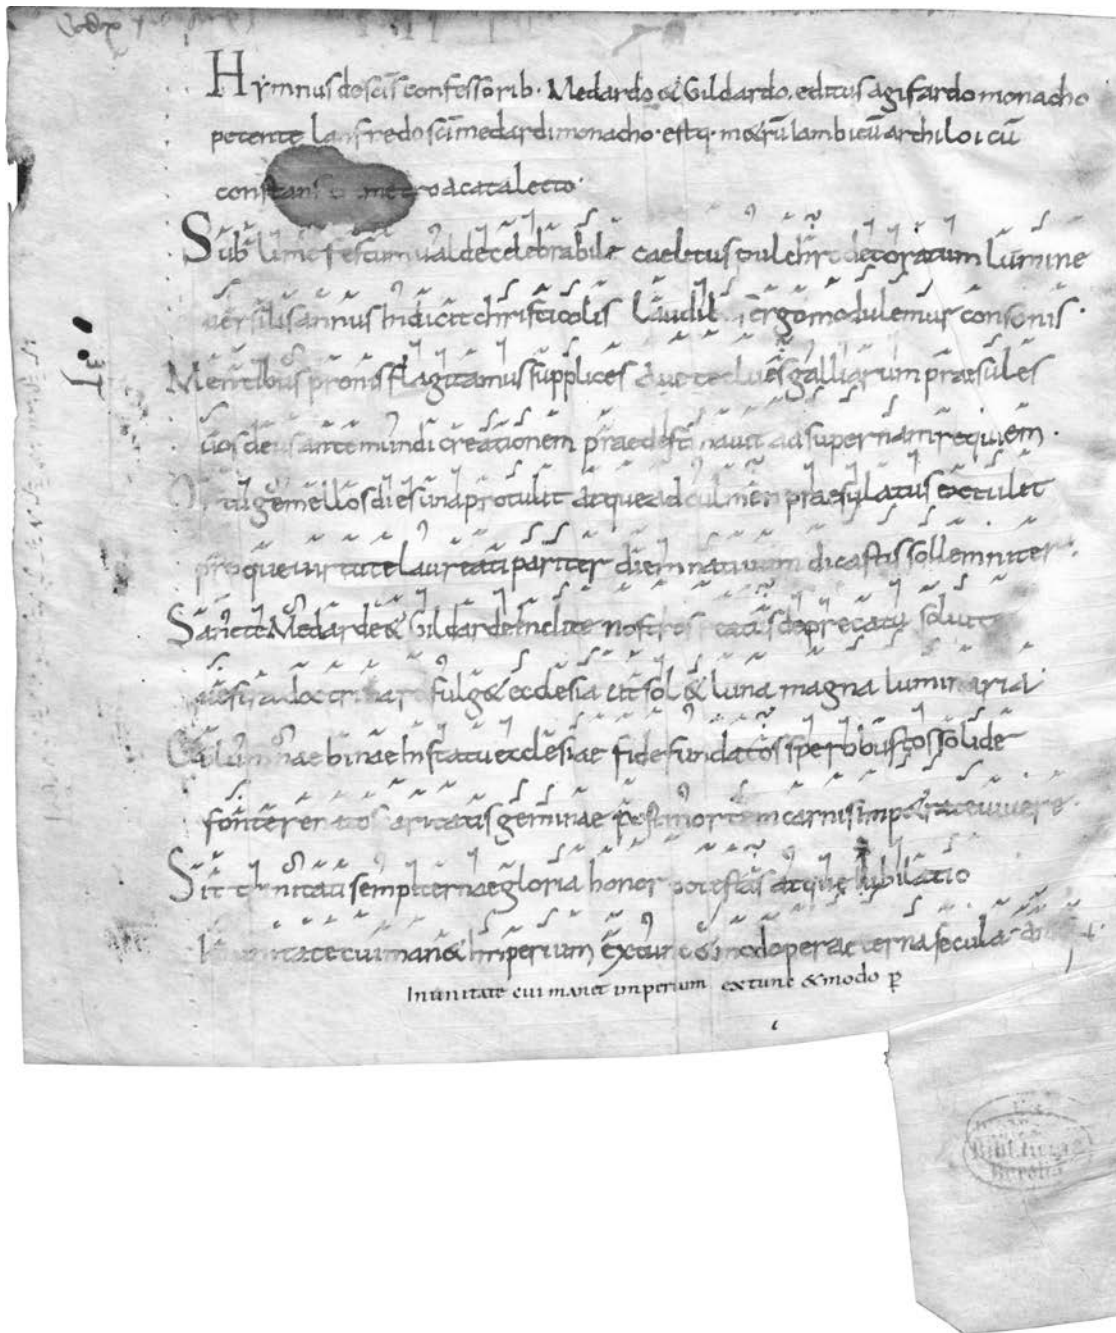 Codex
Hymnus de scis confessorib· Medardo & Gildardo. editus a gisfardo monacho
petente lanfredo sci medardi monacho· estq· m&rū lambicū archiloicū
constans metro acatalecto·
Sublime festum ualde celebrabile caelitus pulchro decoratum lumine
annus indicit christicolis ergo modulemur consonis·
Mentibus pronis flagitamus supplices galliarum praesules
uos deus ante mundi creationem praedestinauit ad supernam requiem·
gemellos dies una protulit atque ad culmen praesulatus extulet
proque uirtute laureati pariter diem natiuum dicastis sollemniter·
Sancte Medarde & Gildarde inclite nostros reatus deprecatu soluite
doctrina fulg& ecclesia ut sol & luna magna luminaria
Columnae binae in statu ecclesiae fide fundatos solide
fonte renatos geminae post mortem carnis uiuere·
Sit trinitati sempiternae gloria honor potestas atque iubilatio
cui man& imperium ex tunc & modo per aeterna secula
In unitate cui manet imperium ex tunc & modo p̄
Biblioteca